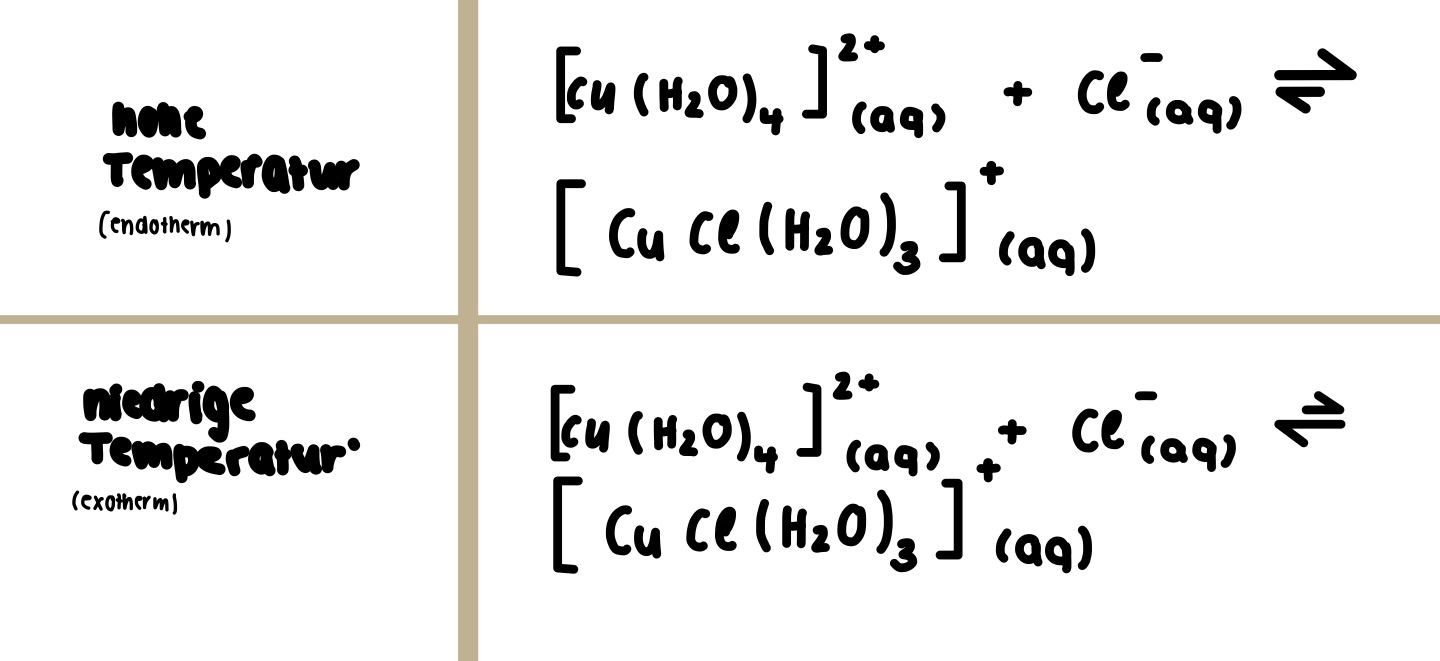 hohe
Temperatur
(endotherm)
[Cu(H₂O)₄]²⁺(aq) + Cl⁻(aq) ⇌
[CuCl(H₂O)₃]⁺(aq)
niedrige
Temperatur
(exotherm)
[Cu(H₂O)₄]²⁺(aq) + Cl⁻(aq) ⇌
[CuCl(H₂O)₃]⁺(aq)